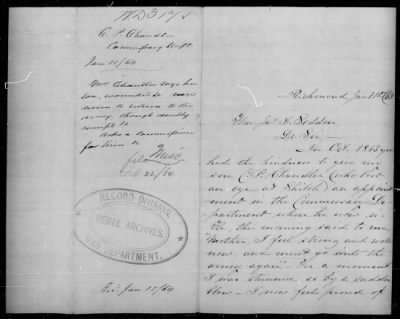 C. P. Chandler
Commissary Dept
Jan 11/64
Mrs Chandler says her
son, wounded is now
to return to the
army, though
Asks a commission
for him
file
Feb 22/64
RECORD DIVISION
REBEL ARCHIVES.
WAR DEPARTMENT.
Rec. Jan 15/64
Richmond Jan 11th/64
Hon Jas A. Seddon
Dr Sir
In Oct. 1863 you
had the kindness to give my
son C. P. Chandler (who lost
an eye at Shiloh) an appoint
ment in the Commissary De
partment where he now is.
He, this morning said to me
"Mother, I feel strong and well
now, and must go into the
army again". In a moment
I was stunned as by a sudden
blow. I now feel proud of